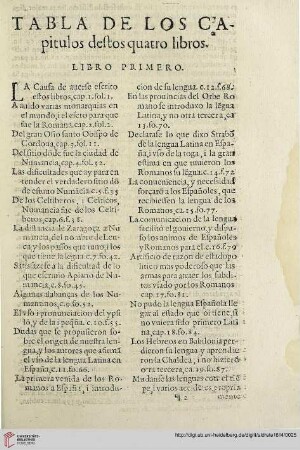 TABLA DE LOS CA-
pitulos destos quatro libros.
LIBRO PRIMERO.
LA Causa de auerse escrito
estos libros, cap. 1. fol. 1.
A auido varias monarquias en
el mundo, i el efeto para que
fue la Romana. cap. 2. fol. 2.
Del gran Osio santo Obispo de
Cordoua, cap. 3. fol. 11.
Del sitio dõde fue la ciudad de
Numancia, cap. 4. fol. 21.
Las dificultades que ay para en
tender el verdadero sitio dõ
de estuuo Numãcia. c. 5. f. 33
De los Celtiberos, i Celticos,
Numancia fue de los Celti
beros, cap. 6. f. 38.
La distancia de Zaragoça a Nu
mancia, del nombre de Len-
ca y los passos que tuuo, i los
que tiene la lẽgua c. 7. fo. 42.
Satisfazese a la dificultad de lo
que escriuio Apiano de Nu
mancia, c. 8. fo. 45.
Algunas alabanças de los Nu
mantinos, c. 9. fo. 52.
El vso i pronunciacion del ypsi
lo, y de las peqña. c. 10. f. 53.
Dudas que se proponen sobre
el origen de nuestra len-
gua, y los autores que afirmã
el vso de la lengua Latina en
España, c. 11. fo. 66.
La primera venida de los Ro-
manos a España, i introdu-
cion de su lengua. c. 12. f. 68.
En las prouincias del Orbe Ro
mano se introduxo la lẽgua
Latina, y no otra tercera, ca
13. fo. 70.
Declarase lo que dixo Strabõ
de la lengua Latina en Espa-
ña, i vso de la toga, i la gran
estima en que tuuieron los
Romanos su lẽgua. c. 14. f. 72
La conueniencia, y necessidad
forçaõ a los Españoles, que
recibiessen la lengua de los
Romanos ca. 15. fo. 77.
La comunicacion de la lengua
facilitò el gouierno, y dispu-
so los animos de Españoles
y Romanos para el. c. 16. f. 79
Artificio de razon de estado po
litico mas poderoso que las
armas para graxar los subdi-
tos vsado por los Romanos
cap. 17. fo. 81.
No pudo la lengua Española lle
gar al estado que oi tiene, si
no vuiera sido primero Lati
na, cap. 18. fo. 84.
Los Hebreos en Babilonia per
dieron la suya i aprendie-
ron la Chaldea, i no hiziero
otra tercera, ca. 19. fo. 87.
Mudanse las lenguas con el ti
¶ 2
mento
http://digi.ub.uni-heidelberg.de/diglit/aldrete1614/0025
© Universitätsbibliothek Heidelberg